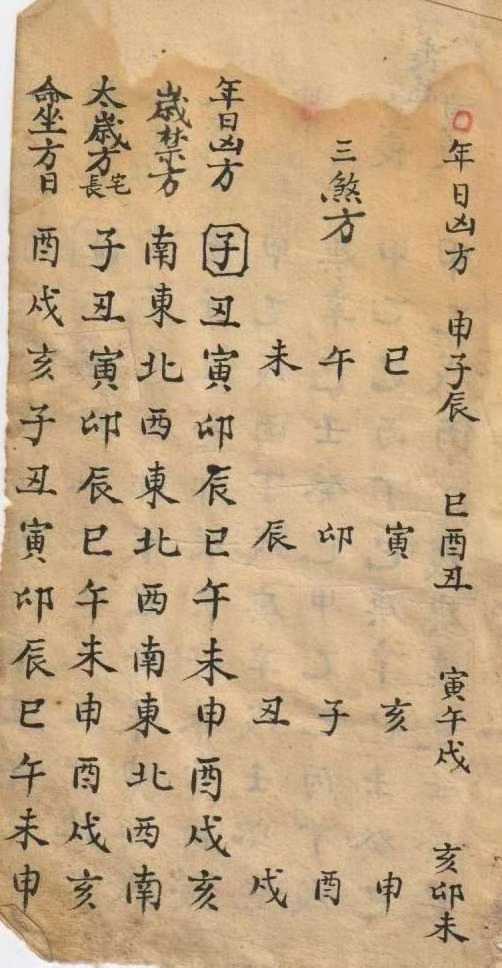 ○年日凶方 申子辰 巳酉丑 寅午戌 亥卯未
巳 寅 亥 申
三煞方 午 卯 子 酉
未 辰 丑 戌
年日凶方 子丑寅卯辰巳午未申酉戌亥
歲禁方 南東北西東北西南東北西南
太歲方 宅長 子丑寅卯辰巳午未申酉戌亥
命坐方日 酉戌亥子丑寅卯辰巳午未申